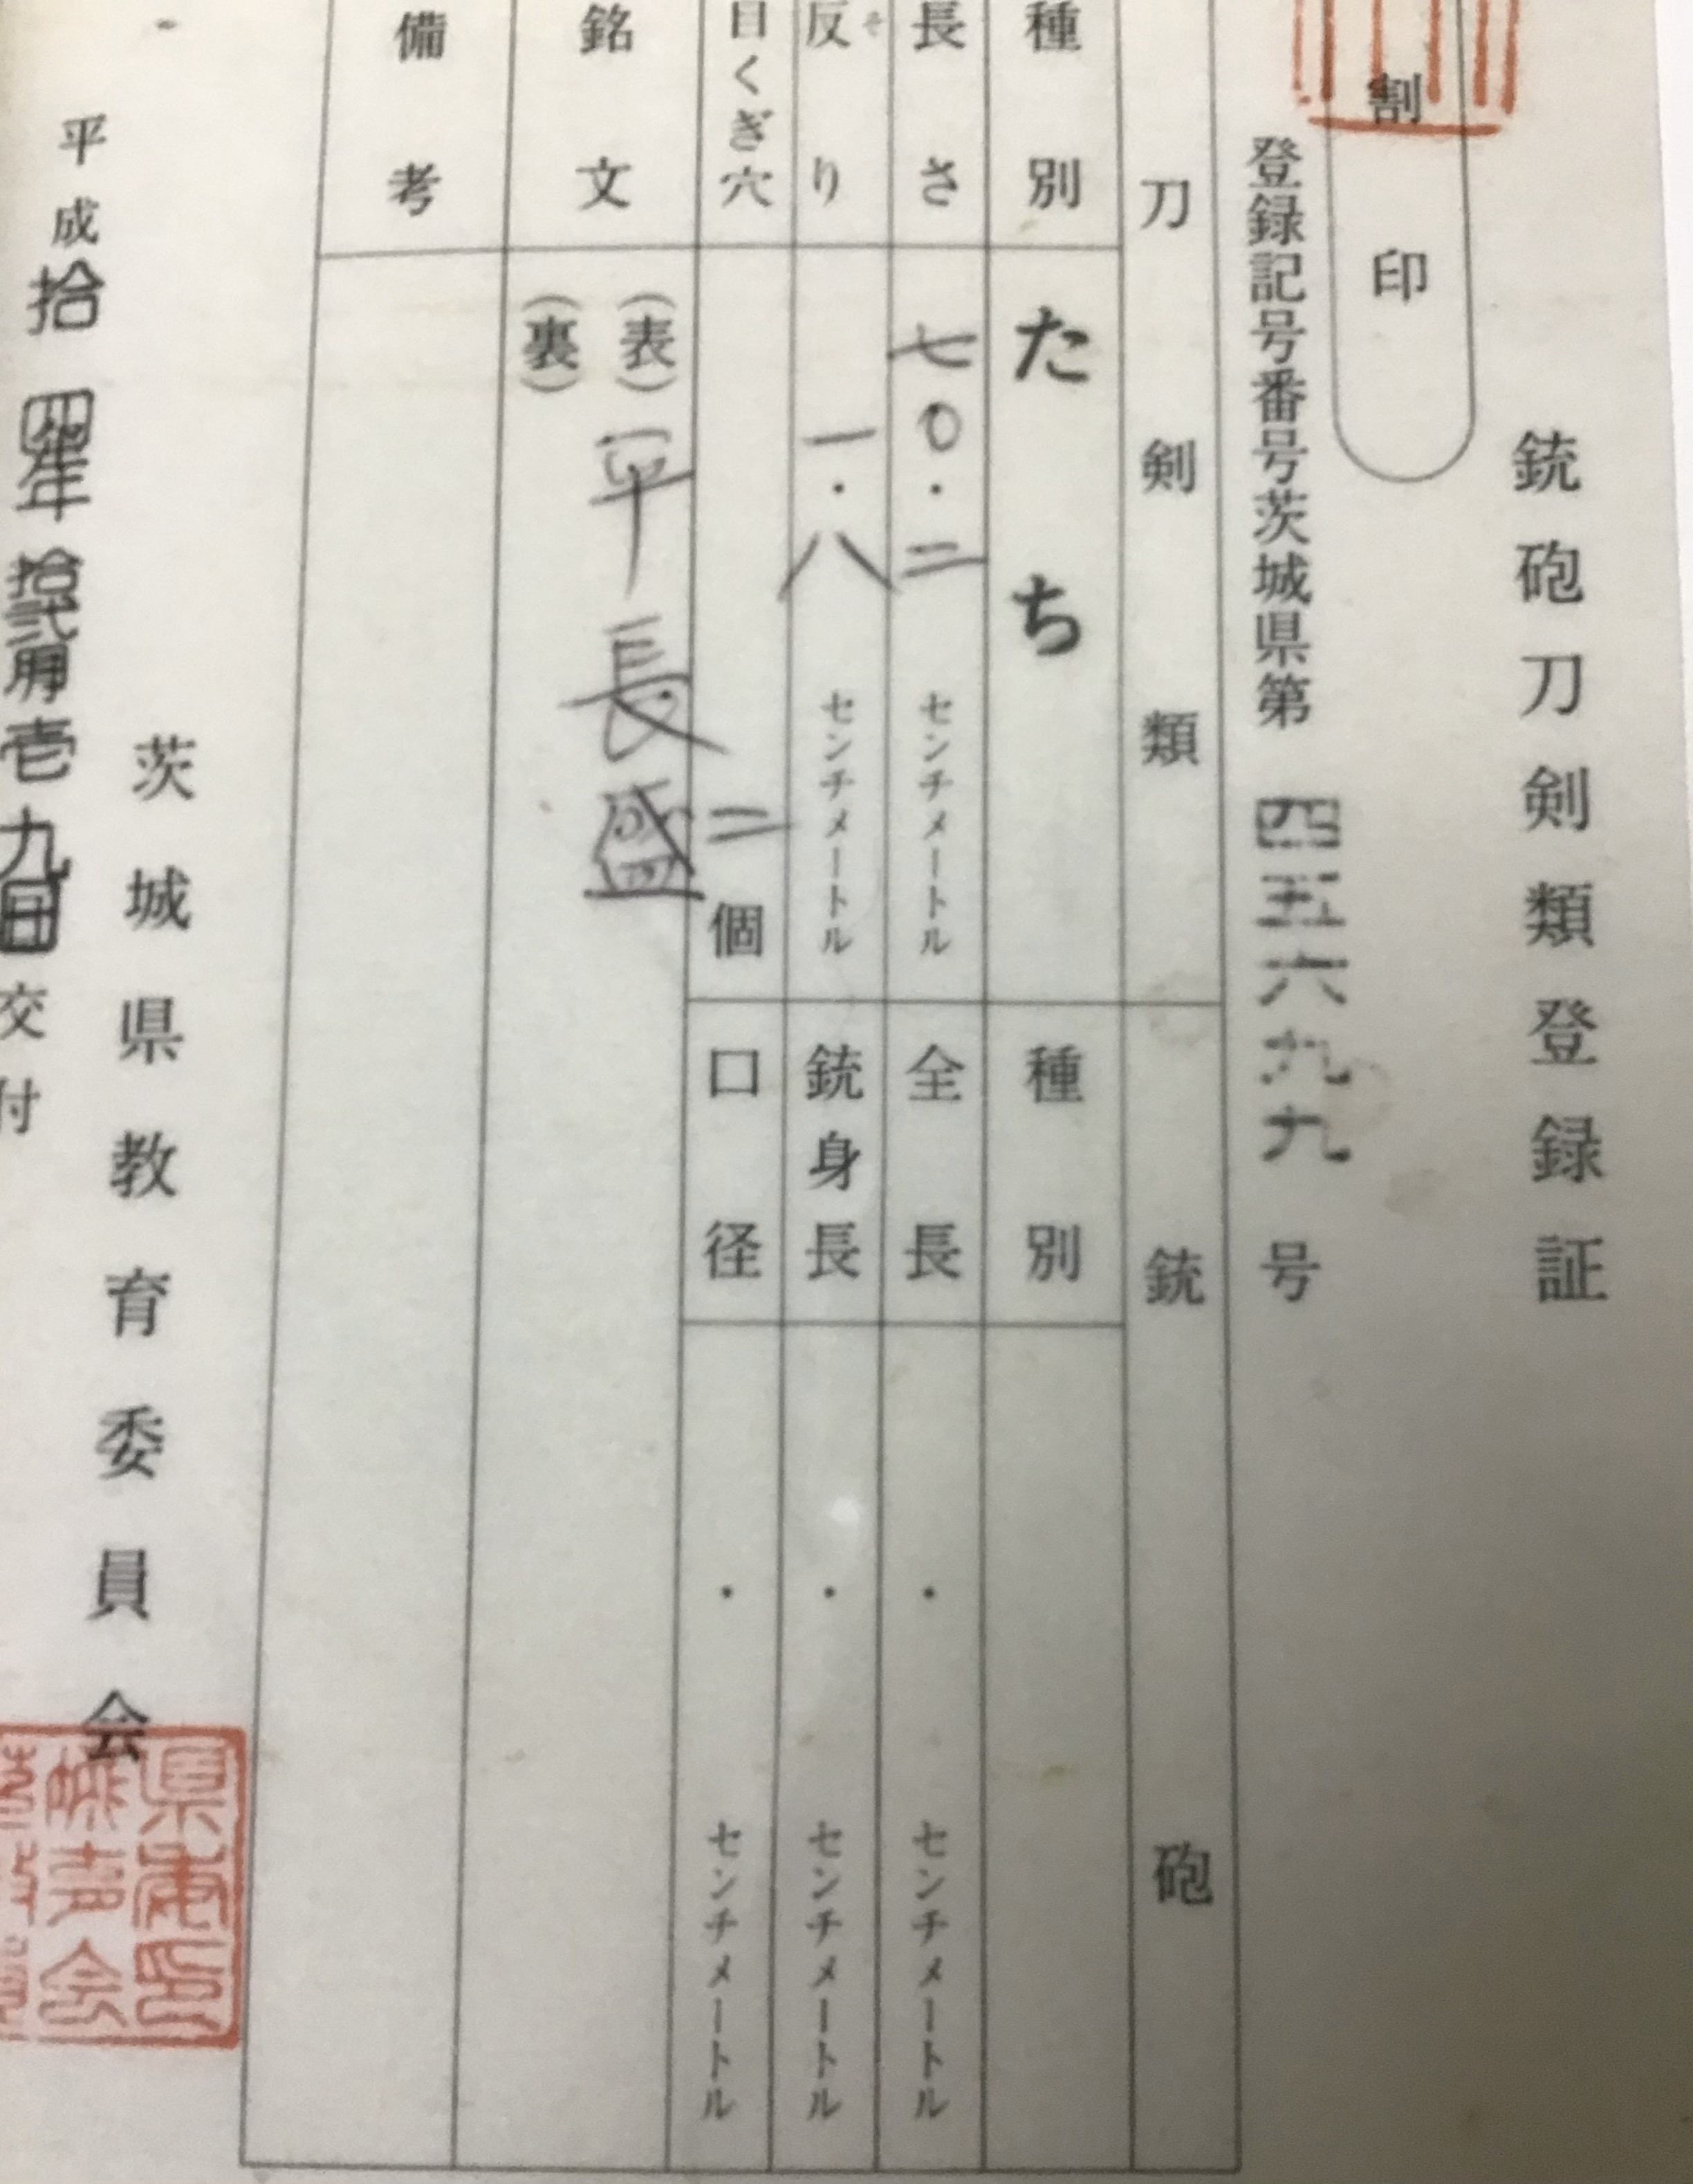 銃砲刀剣類登録証
割印
登録記号番号茨城県第四五六九九号
刀剣類
銃砲
種別 たち
種別
長さ 七〇・二 センチメートル
全長 ・ センチメートル
反り 一・八 センチメートル
そ
銃身長 ・ センチメートル
目くぎ穴 二個
口径 ・ センチメートル
銘文
(表) 平長盛
(裏)
備考
平成拾四年拾弐月壱九日交付
茨城県教育委員会